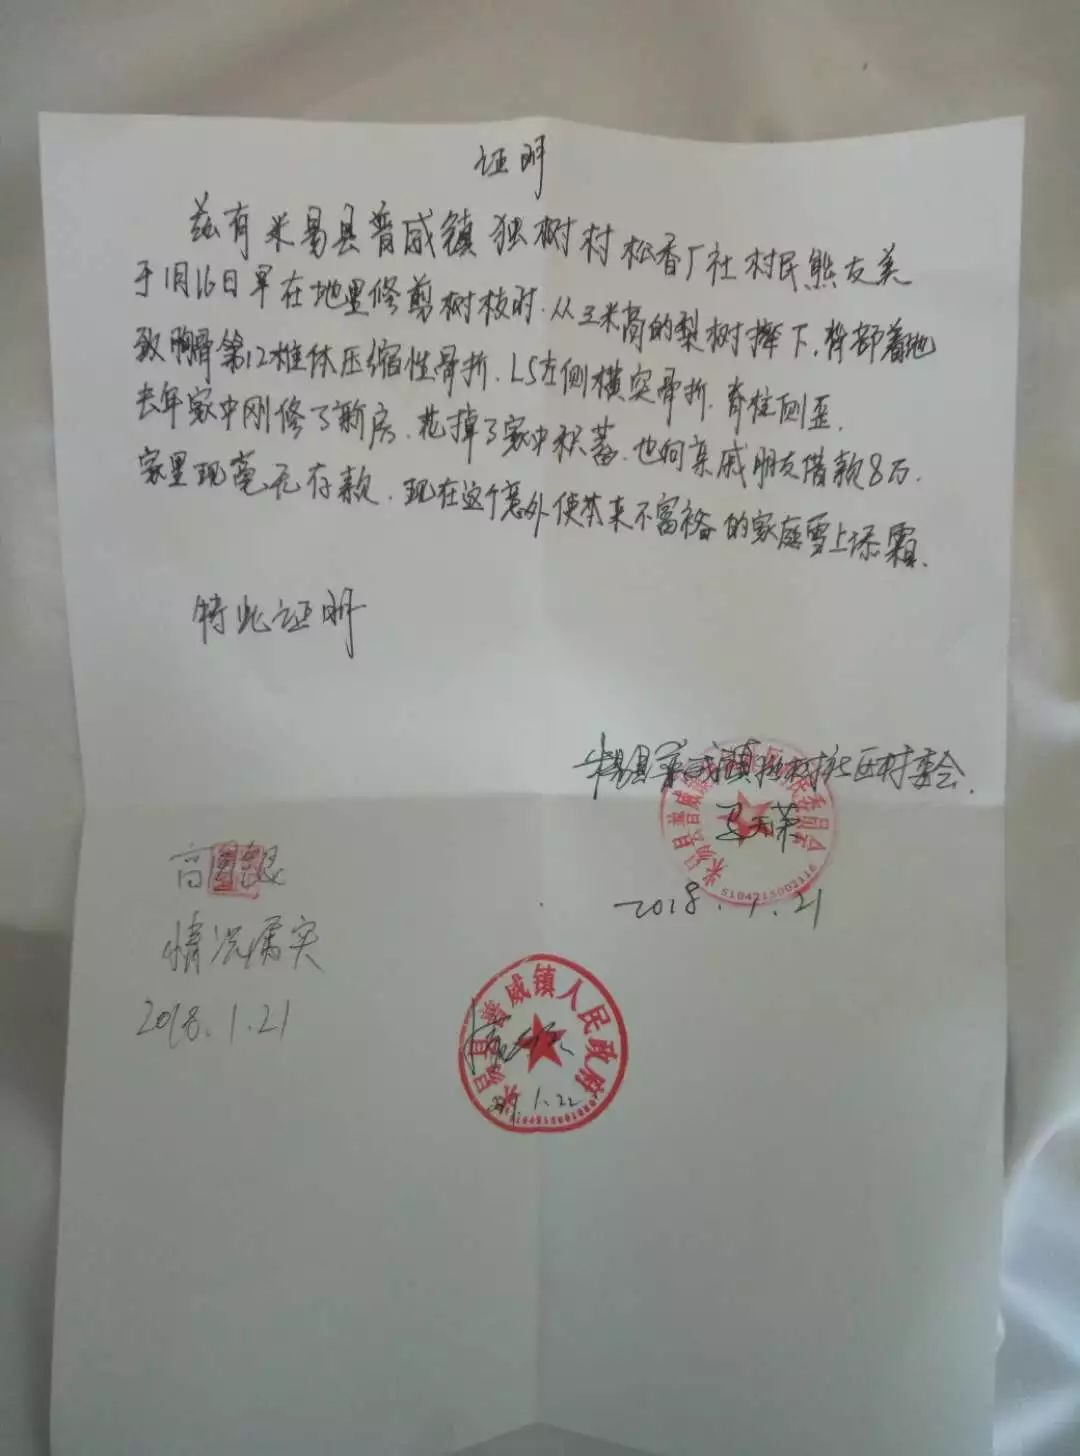 证明
兹有米易县普威镇独树村松香厂社村民熊友美
于1月16日早在地里修剪树枝时.从三米高的梨树摔下.背部着地
致胸骨第12椎体压缩性骨折.L5左侧横突骨折.脊柱侧歪.
去年家中刚修了新房.花掉了家中积蓄.也向亲戚朋友借款8万.
家里现毫无存款.现在这个意外使本来不富裕的家庭雪上添霜.
特此证明
米易县普威镇独树社区村委会.
2018.1.21
5104215002116
高 银
情况属实
2018.1.21
米易县普威镇人民政府
1.22